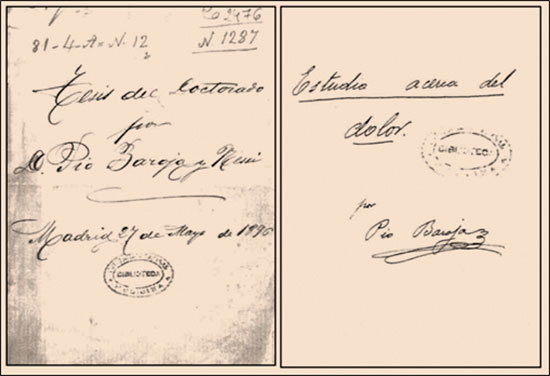 Ca 2476
81-4-A= N. 12
N 1287
Tesis del Doctorado
por
D. Pío Baroja y Nessi
Madrid 27 de Mayo de 1896
BIBLIOTECA
MEDICINA
Estudio acerca del
dolor.
BIBLIOTECA
por
Pío Baroja